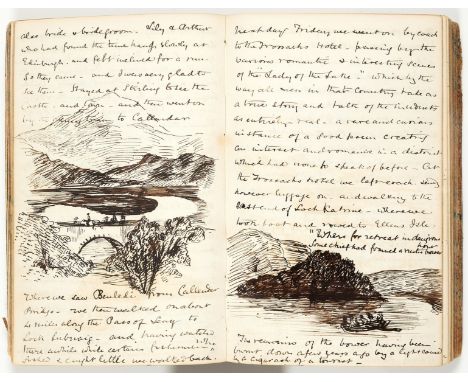 also bride & bridegroom. Lily & Arthur
who had found the time hang slowly at
Edinburgh and felt inclined for a run.
So they came - and I was very glad to
see them - Stayed at Stirling to see the
Castle - and Town - and then went on
by to Callander
Where we saw Benledi from Callander
Bridge - We then walked on about
miles along the Pass of Leny to
Loch Lubnaig - and having watched
there awhile while certain fishermen
fished & caught little we walked back.
Next day Friday we went on by coach
to the Trossachs Hotel - passing by the
various romantic & interesting scenes
of the "Lady of the Lake" which by the
way all men in that Country take as
a true story and talk of the incidents
as entirely real - a rare and curious
instance of a Good poem creating
an interest and romance in a district
which had none to speak of before - At
the Trossachs Hotel we left coach
however luggage on - and walking to the
East end of Loch Katrine - where we
took boat and rowed to Ellens Isle
"Where for retreat in dangerous hour
Some chief had framed a rustic bower
The remains of the bower having been
burnt down a few years ago by a light
cigar of a tourist.